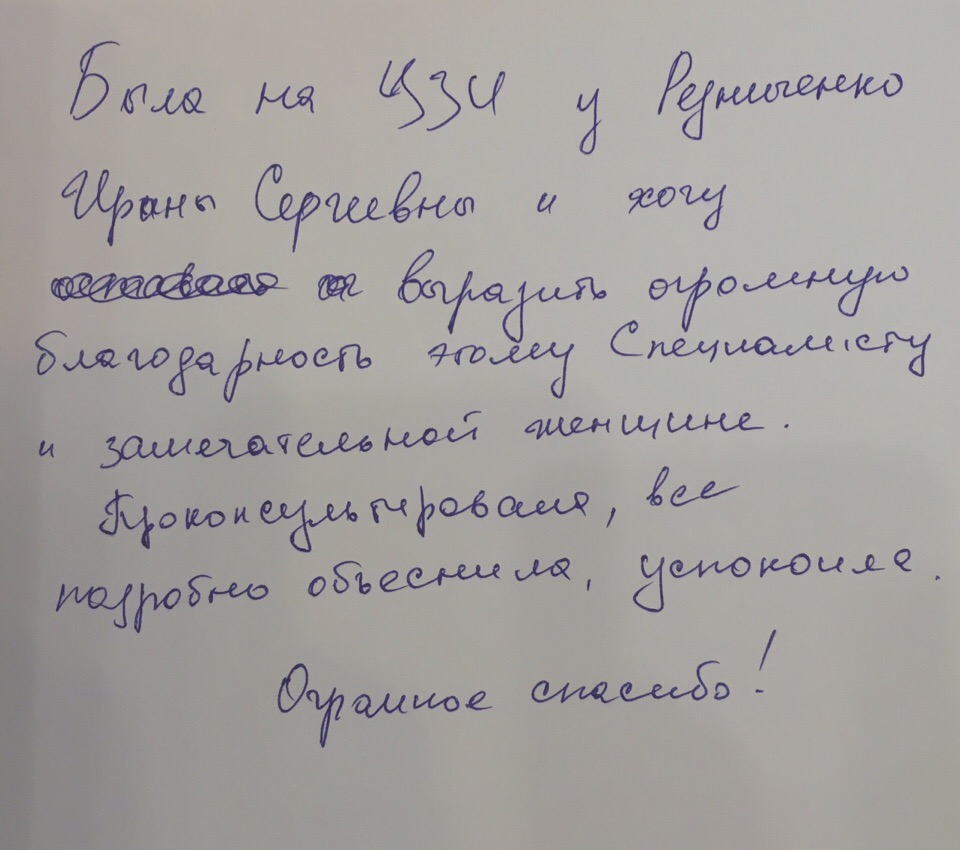 Была на УЗИ у Резниченко
Ирины Сергиевны и хочу
выразить огромную
благодарность этому Специалисту
и замечательной женщине.
Проконсультировала, все
подробно объеснила, успокоила.
Огромное спасибо!